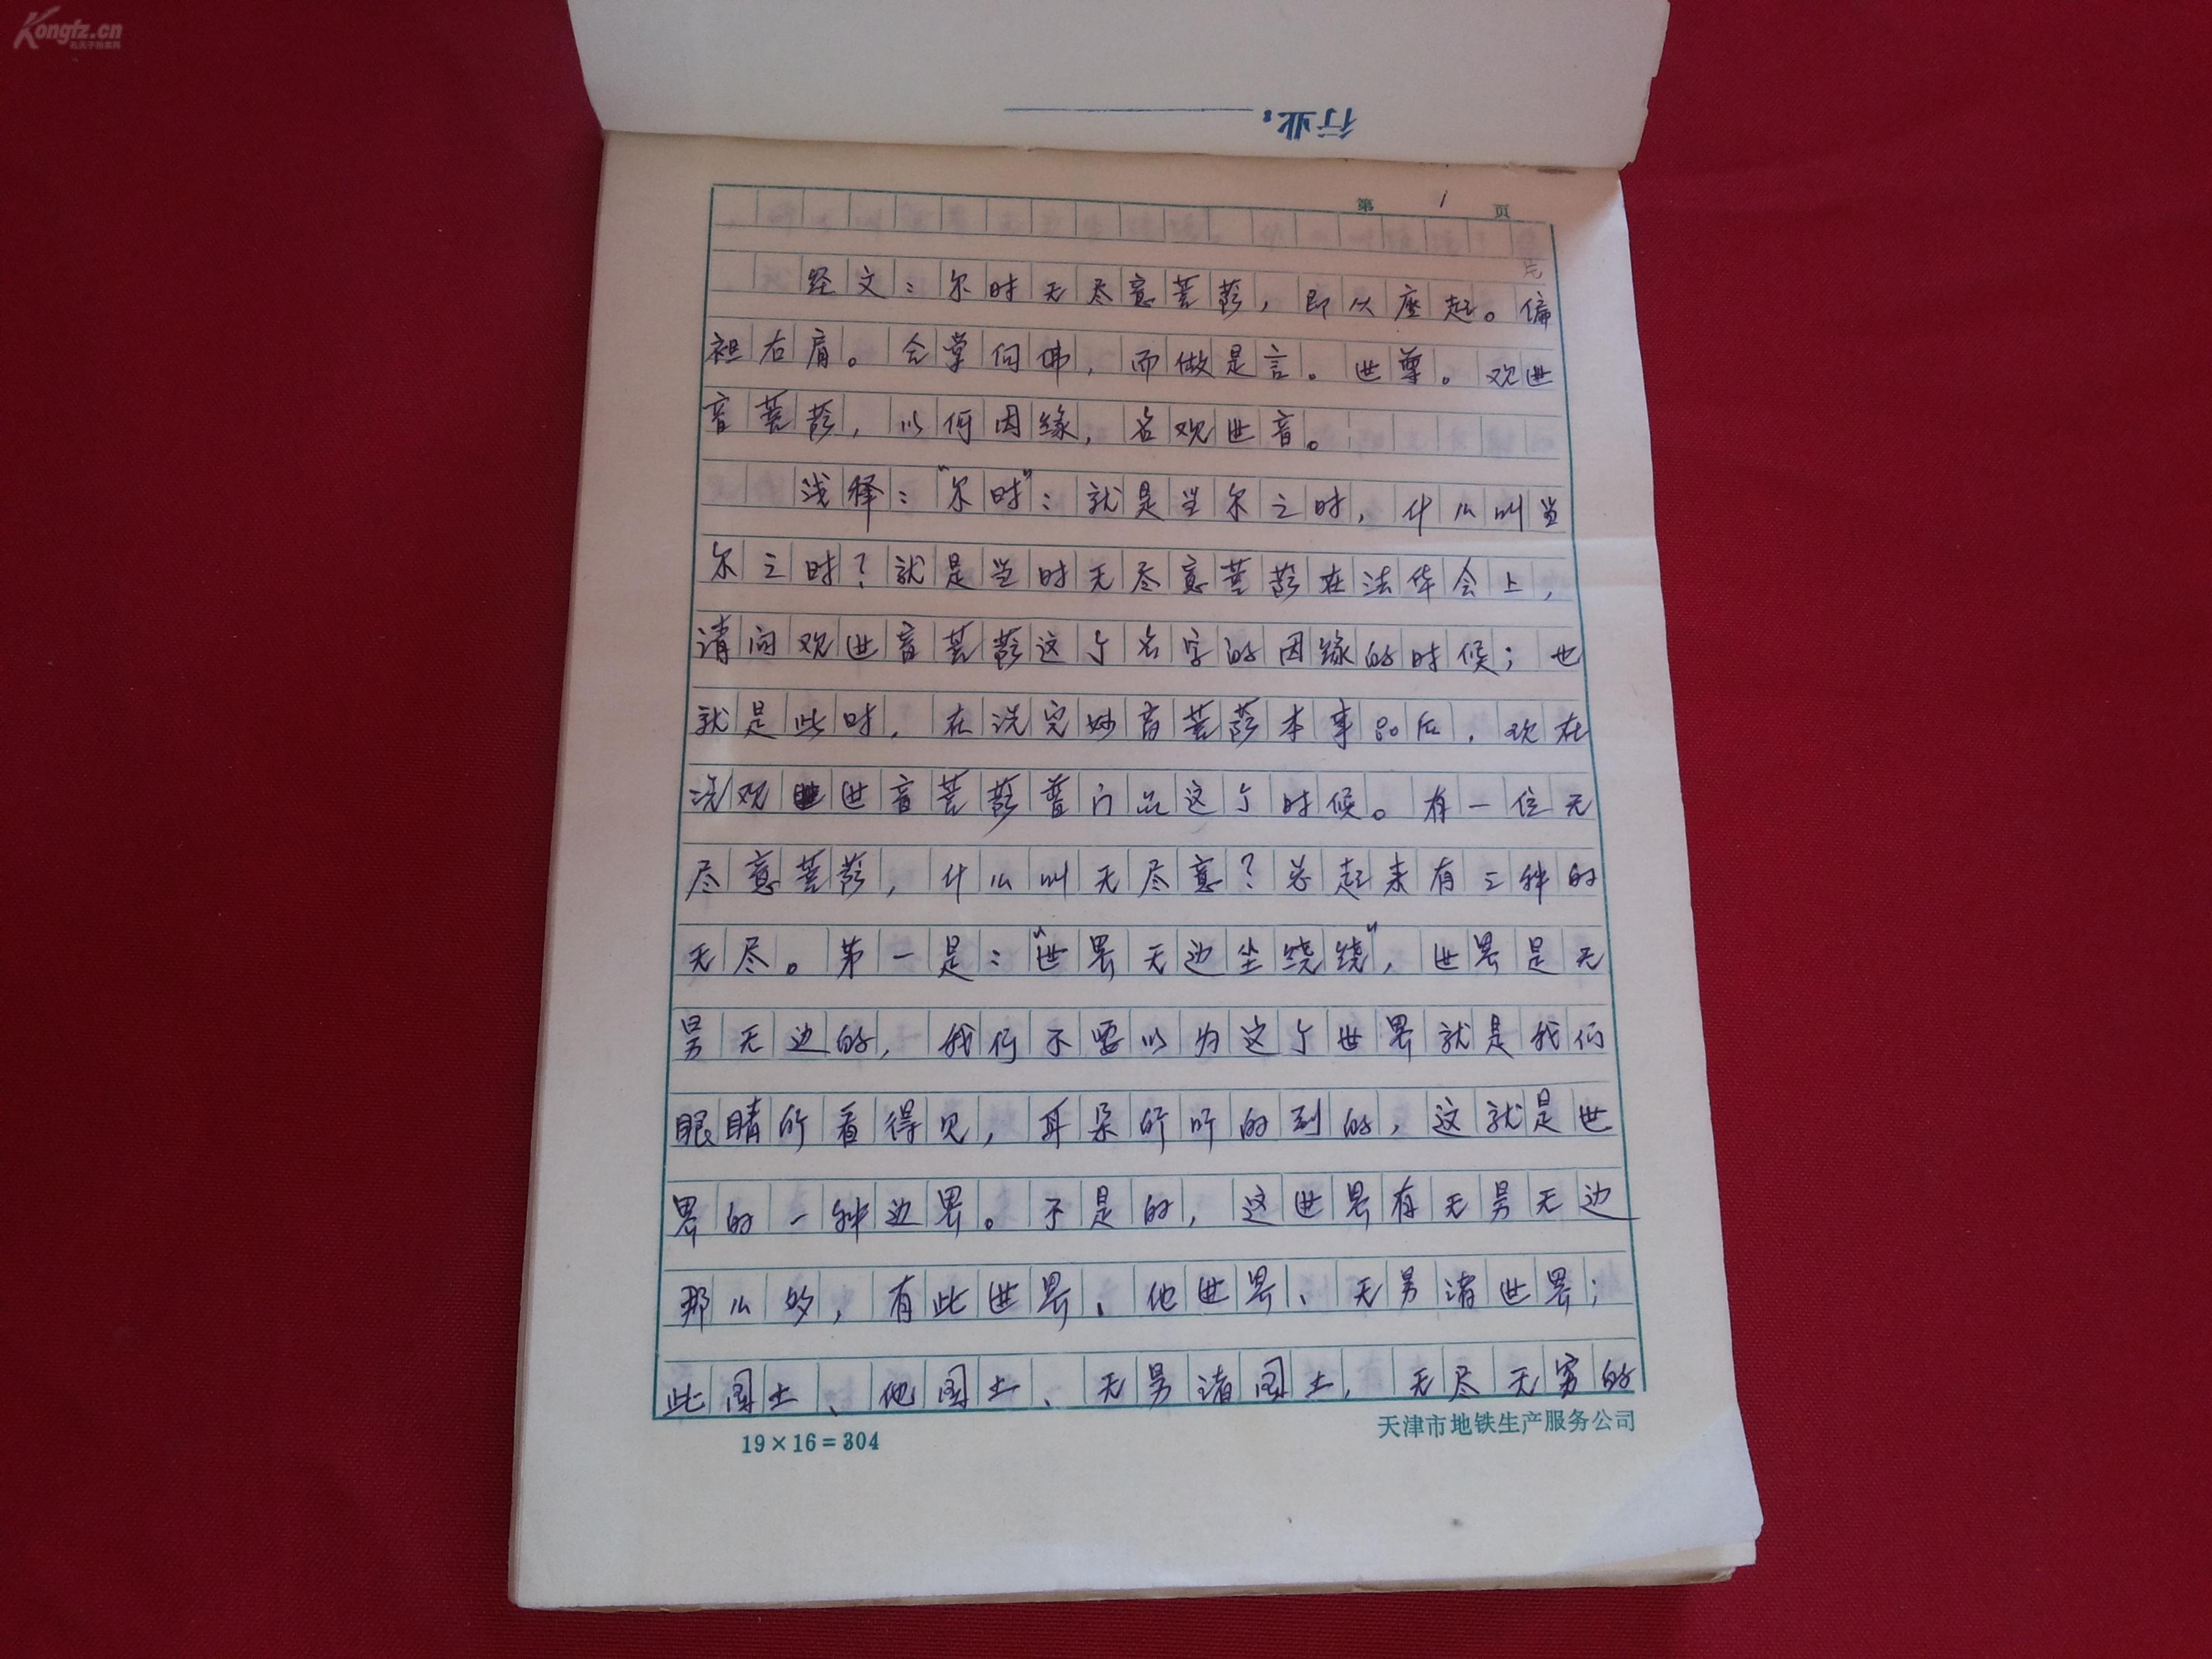 Kongfz.cn
行业:
第 1 页
经文:尔时无尽意菩萨,即从座起。偏
袒右肩。合掌向佛,而做是言。世尊。观世
音菩萨,以何因缘,名观世音。
浅释:"尔时":就是当尔之时,什么叫当
尔之时?就是当时无尽意菩萨在法华会上,
请问观世音菩萨这个名字的因缘的时候;也
就是此时,在说完妙音菩萨本事品后,现在
说观世音菩萨普门品这个时候。有一位无
尽意菩萨,什么叫无尽意?总起来有三种的
无尽。第一是:"世界无边尘绕绕",世界是无
穷无边的,我们不要以为这个世界就是我们
眼睛所看得见,耳朵所听的到的,这就是世
界的一种边界。不是的,这世界有无穷无边
那么多,有此世界、他世界、无穷诸世界;
此国土、他国土、无穷诸国土,无尽无穷的
19×16=304
天津市地铁生产服务公司